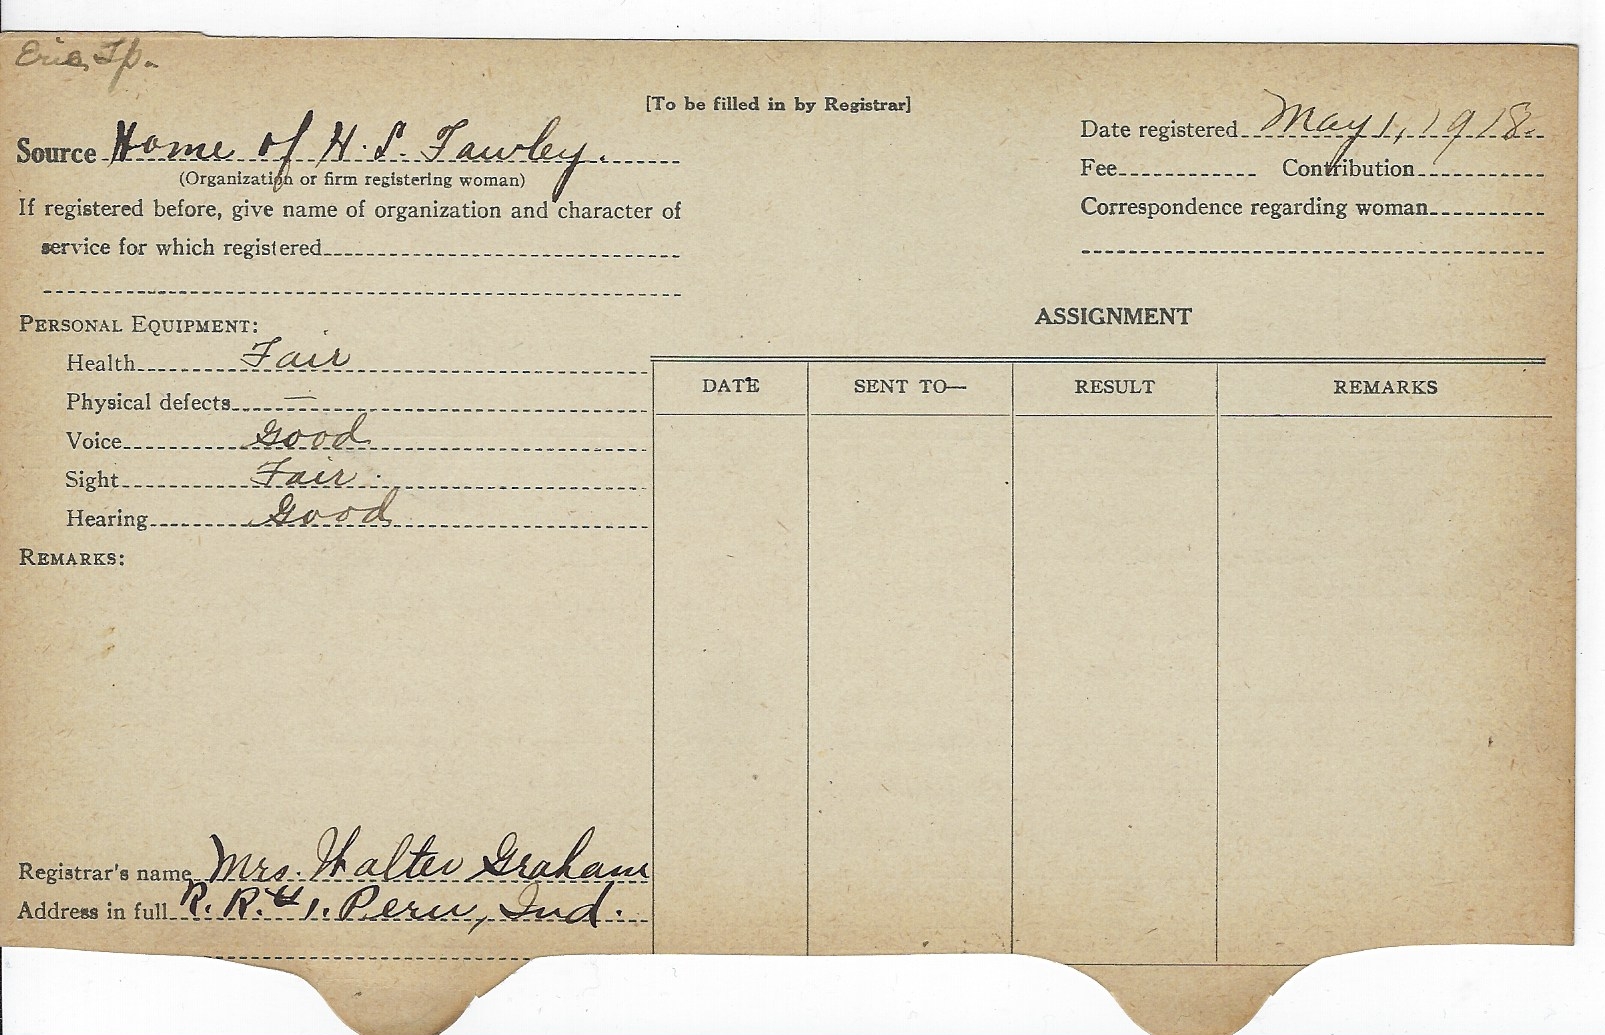 Erie Tp.
[To be filled in by Registrar]
Source Home of H. S. Fawley.
(Organization or firm registering woman)
If registered before, give name of organization and character of
service for which registered
Date registered May 1, 1918.
Fee Contribution
Correspondence regarding woman
PERSONAL EQUIPMENT:
Health Fair
Physical defects —
Voice Good
Sight Fair
Hearing Good
REMARKS:
ASSIGNMENT
DATE SENT TO— RESULT REMARKS
Registrar's name Mrs. Walter Graham
Address in full R. R. # 1. Peru, Ind.